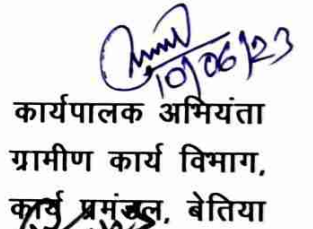 10/06/23
कार्यपालक अभियंता
ग्रामीण कार्य विभाग,
कार्य प्रमंडल, बेतिया